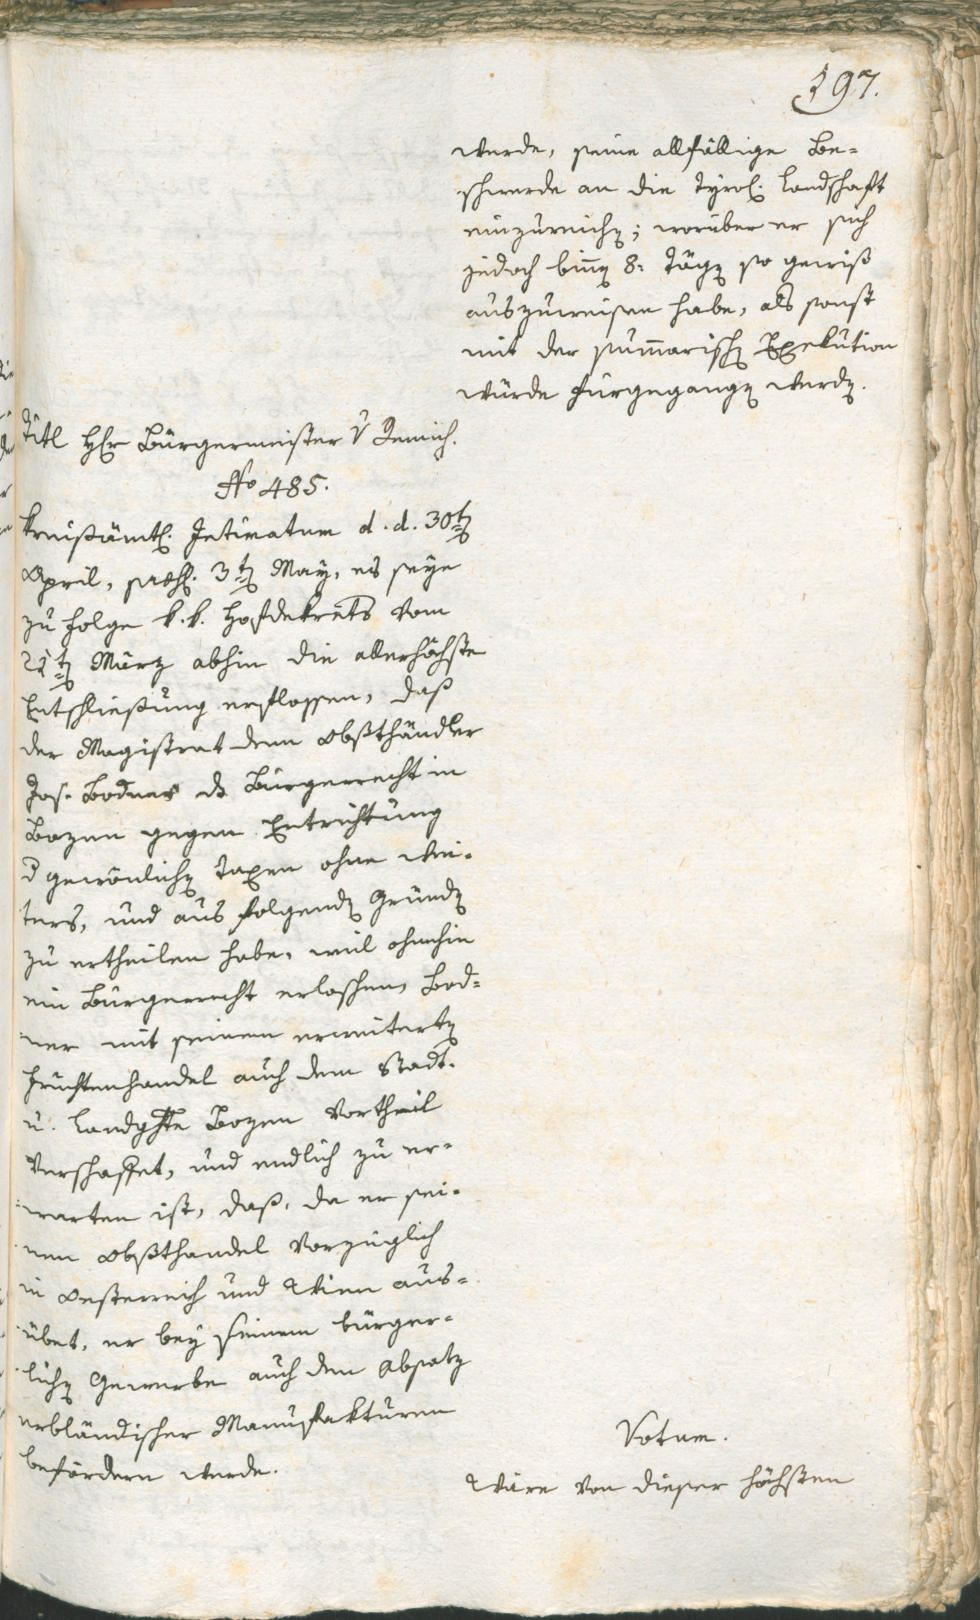 197.
werde, seine allfällige Be-
schwerde an die Tyrol. Landschaft
einzureichen; worüber er sich
jedoch binnen 8: Tägen so gewiß
auszuweisen habe, als sonst
mit der summarischen Exekution
würde fürgegangen werden.
Titl Hr Bürgermeister v
No 485.
Kreisämtl. Intimatum d. d. 30ten
April, 3ten May, es seye
zu folge k. k. Hofdekrets vom
21ten März abhin die allerhöchste
Entschließung erflossen, daß
der Magistrat dem Obsthändler
Jos. Bodner ds Bürgerrecht in
Bozen gegen Entrichtung
d gewönlichen Taxen ohne wei-
ters, und aus folgenden Gründen
zu ertheilen habe, weil ohnehin
ein Bürgerrecht erloschen, Bod-
ner mit seinem erweiterten
Früchtenhandel auch dem Stadt-
u. Landgchte Bozen Vortheil
verschaffet, und endlich zu er-
warten ist, daß, da er sei-
nen Obsthandel vorzüglich
in Oesterreich und Wien aus-
übet, er bey seinem bürger-
lichen Gewerbe auch den Absatz
erbländischer Manufakturen
befördern werde.
Votum.
Wäre von dieser höchsten